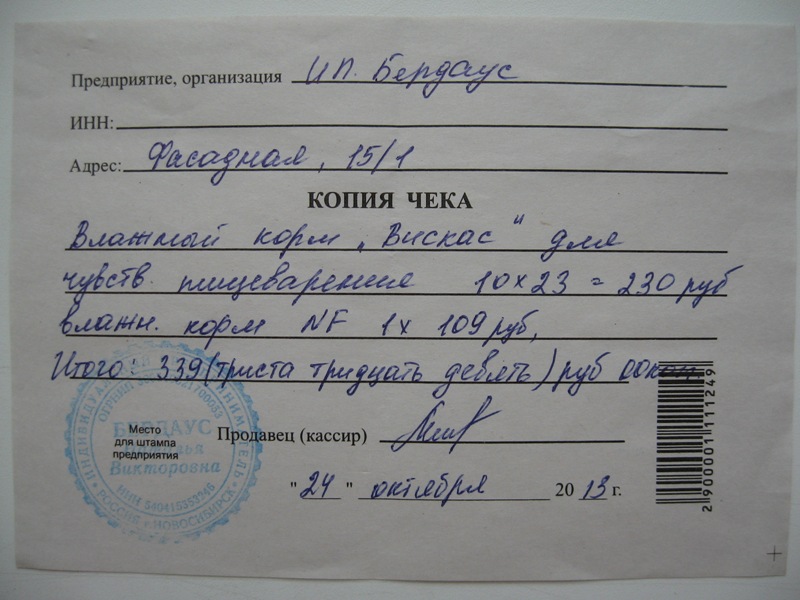 Предприятие, организация ИП. Бердаус
ИНН:
Адрес: Фасадная, 15/1
КОПИЯ ЧЕКА
Влажный корм „Вискас" для
чувств. пищеварения 10 х 23 = 230 руб
влажн. корм NF 1 х 109 руб,
Итого: 339 (триста тридцать девять) руб 00 коп.
Место
для штампа
предприятия
БЕРДАУС
Викторовна
ИНДИВИДУ
РОССИЯ г.НОВОСИБИРСК
Продавец (кассир)
"24" октября 2013 г.
2 900001 111249